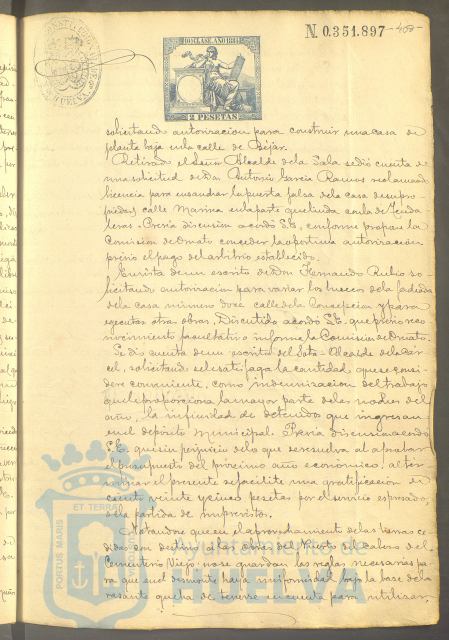 N. 0.351.897 -408-
10ª CLASE. AÑO 1884
2 PESETAS
solicitando autorizacion para construir una casa de
planta baja en la calle de Béjar.
Retirado el Señor Alcalde de la Sala se dió cuenta de
una solicitud de Don Antonio Garcia Ramos reclamando
licencia para ensanchar la puerta falsa de la casa de su pro-
piedad, calle Marina en la parte que linda con la de Tende-
leras. Previa discusion acordó S.E. conforme propone la
Comision de Ornato conceder la oportuna autorizacion
prévio el pago del arbitrio establecido.
En vista de un escrito de Don Fernando Rubio so-
licitando autorizacion para variar los huecos de la fachada
de la casa número doce calle de la Concepcion y para
ejecutar otras obras, Discutido acordó S.E. que prévio reco-
nocimiento facultativo informe la Comision de Ornato.
Se dió cuenta de un escrito del Sota-Alcaide de la Cár-
cel, solicitando se le satisfaga la cantidad que se consi-
dere conveniente, como indemnizacion del trabajo
que le proporciona la mayor parte de las noches del
año, la infinidad de detenidos que ingresan
en el depósito municipal. Previa discusion acordó
S.E. que sin perjuicio de lo que se resuelva al aprobar
el presupuesto del próximo año económico, al ter-
minar el presente se facilite una gratificacion de
ciento veinte y cinco pesetas por el servicio espresado,
de la partida de imprevistos.
Notándose que en el aprovechamiento de las tierras ce-
didas con destino a las obras del Puerto, al cabezo del
Cementerio Viejo, no se guardan las reglas necesarias pa-
ra que en el desmonte haya uniformidad, bajo la base de la
rasante que ha de tenerse en cuenta para utilizar,
PORTUS MARIS ET TERRAE
Ayuntamiento de
HUELVA